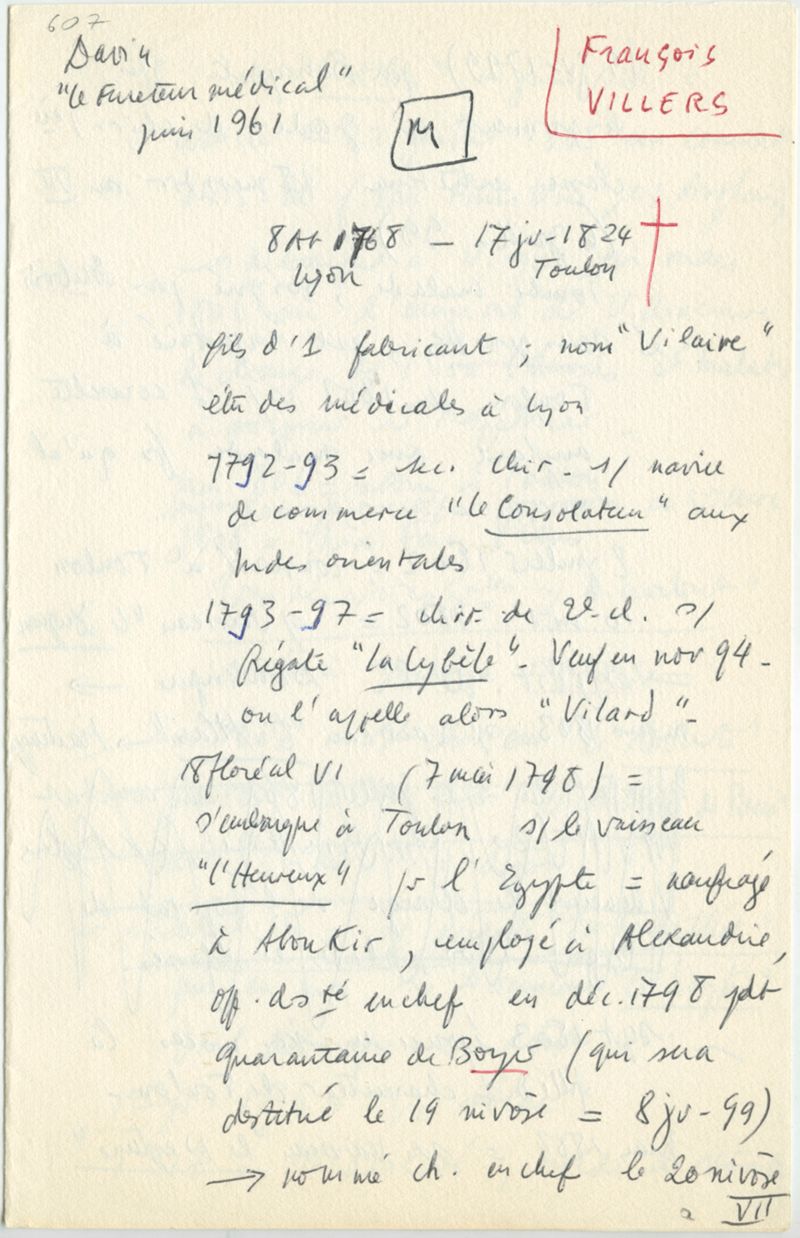 607
Davin
"Le Fureteur médical"
juin 1961
M
François
VILLERS
8 At 1768 – 17 jv-1824 †
Lyon Toulon
fils d'1 fabricant ; nom "Vilaire"
études médicales à Lyon
1792-93 = sec. chir. s/ navire
de commerce "Le Consolateur" aux
Indes orientales
1793-97 = chir. de 2e cl. s/
frégate "La Cybèle". Veuf en nov 94 -
on l'appelle alors "Vilard" -
18 floréal VI (7 mai 1798) =
s'embarque à Toulon s/ le vaisseau
"l'Heureux" pr l'Egypte = naufragé
à Aboukir, employé à Alexandrie,
off. de sté en chef en déc. 1798 pdt
quarantaine de Boyer (qui sera
destitué le 19 nivôse = 8 jv-99)
→ nommé ch. en chef le 20 nivôse
VII